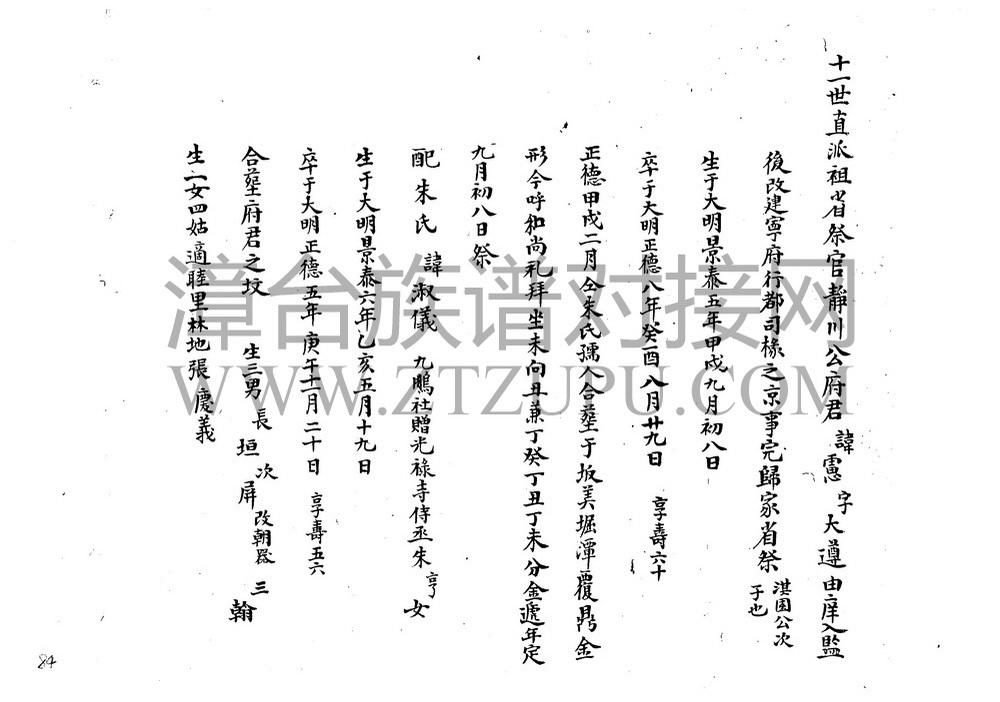 十一世直派祖省祭官靜川公府君 諱憲 字 大遵由庠入監
後改建寧府行都司椽之京事完歸家省祭 湛園公次子也
生于大明景泰五年甲戌九月初八日
卒于大明正德八年癸酉八月廿九日 享壽六十
正德甲戌二月仝朱氏孺人合塟于坂美堀潭覆鼎金
形今呼和尚礼拜坐未向丑兼丁癸丁丑丁未分金遞年定
九月初八日祭
配朱氏 諱淑儀 九鵰社贈光祿寺侍丞朱亨女
生于大明景泰六年乙亥五月十九日
卒于大明正德五年庚午十一月二十日 享壽五六
合塟府君之坟 生三男 長垣 次屏 改朝器 三翰
生一女四姑適睦里林地張慶義
漳台族谱对接网
WWW.ZTZUPU.COM
84